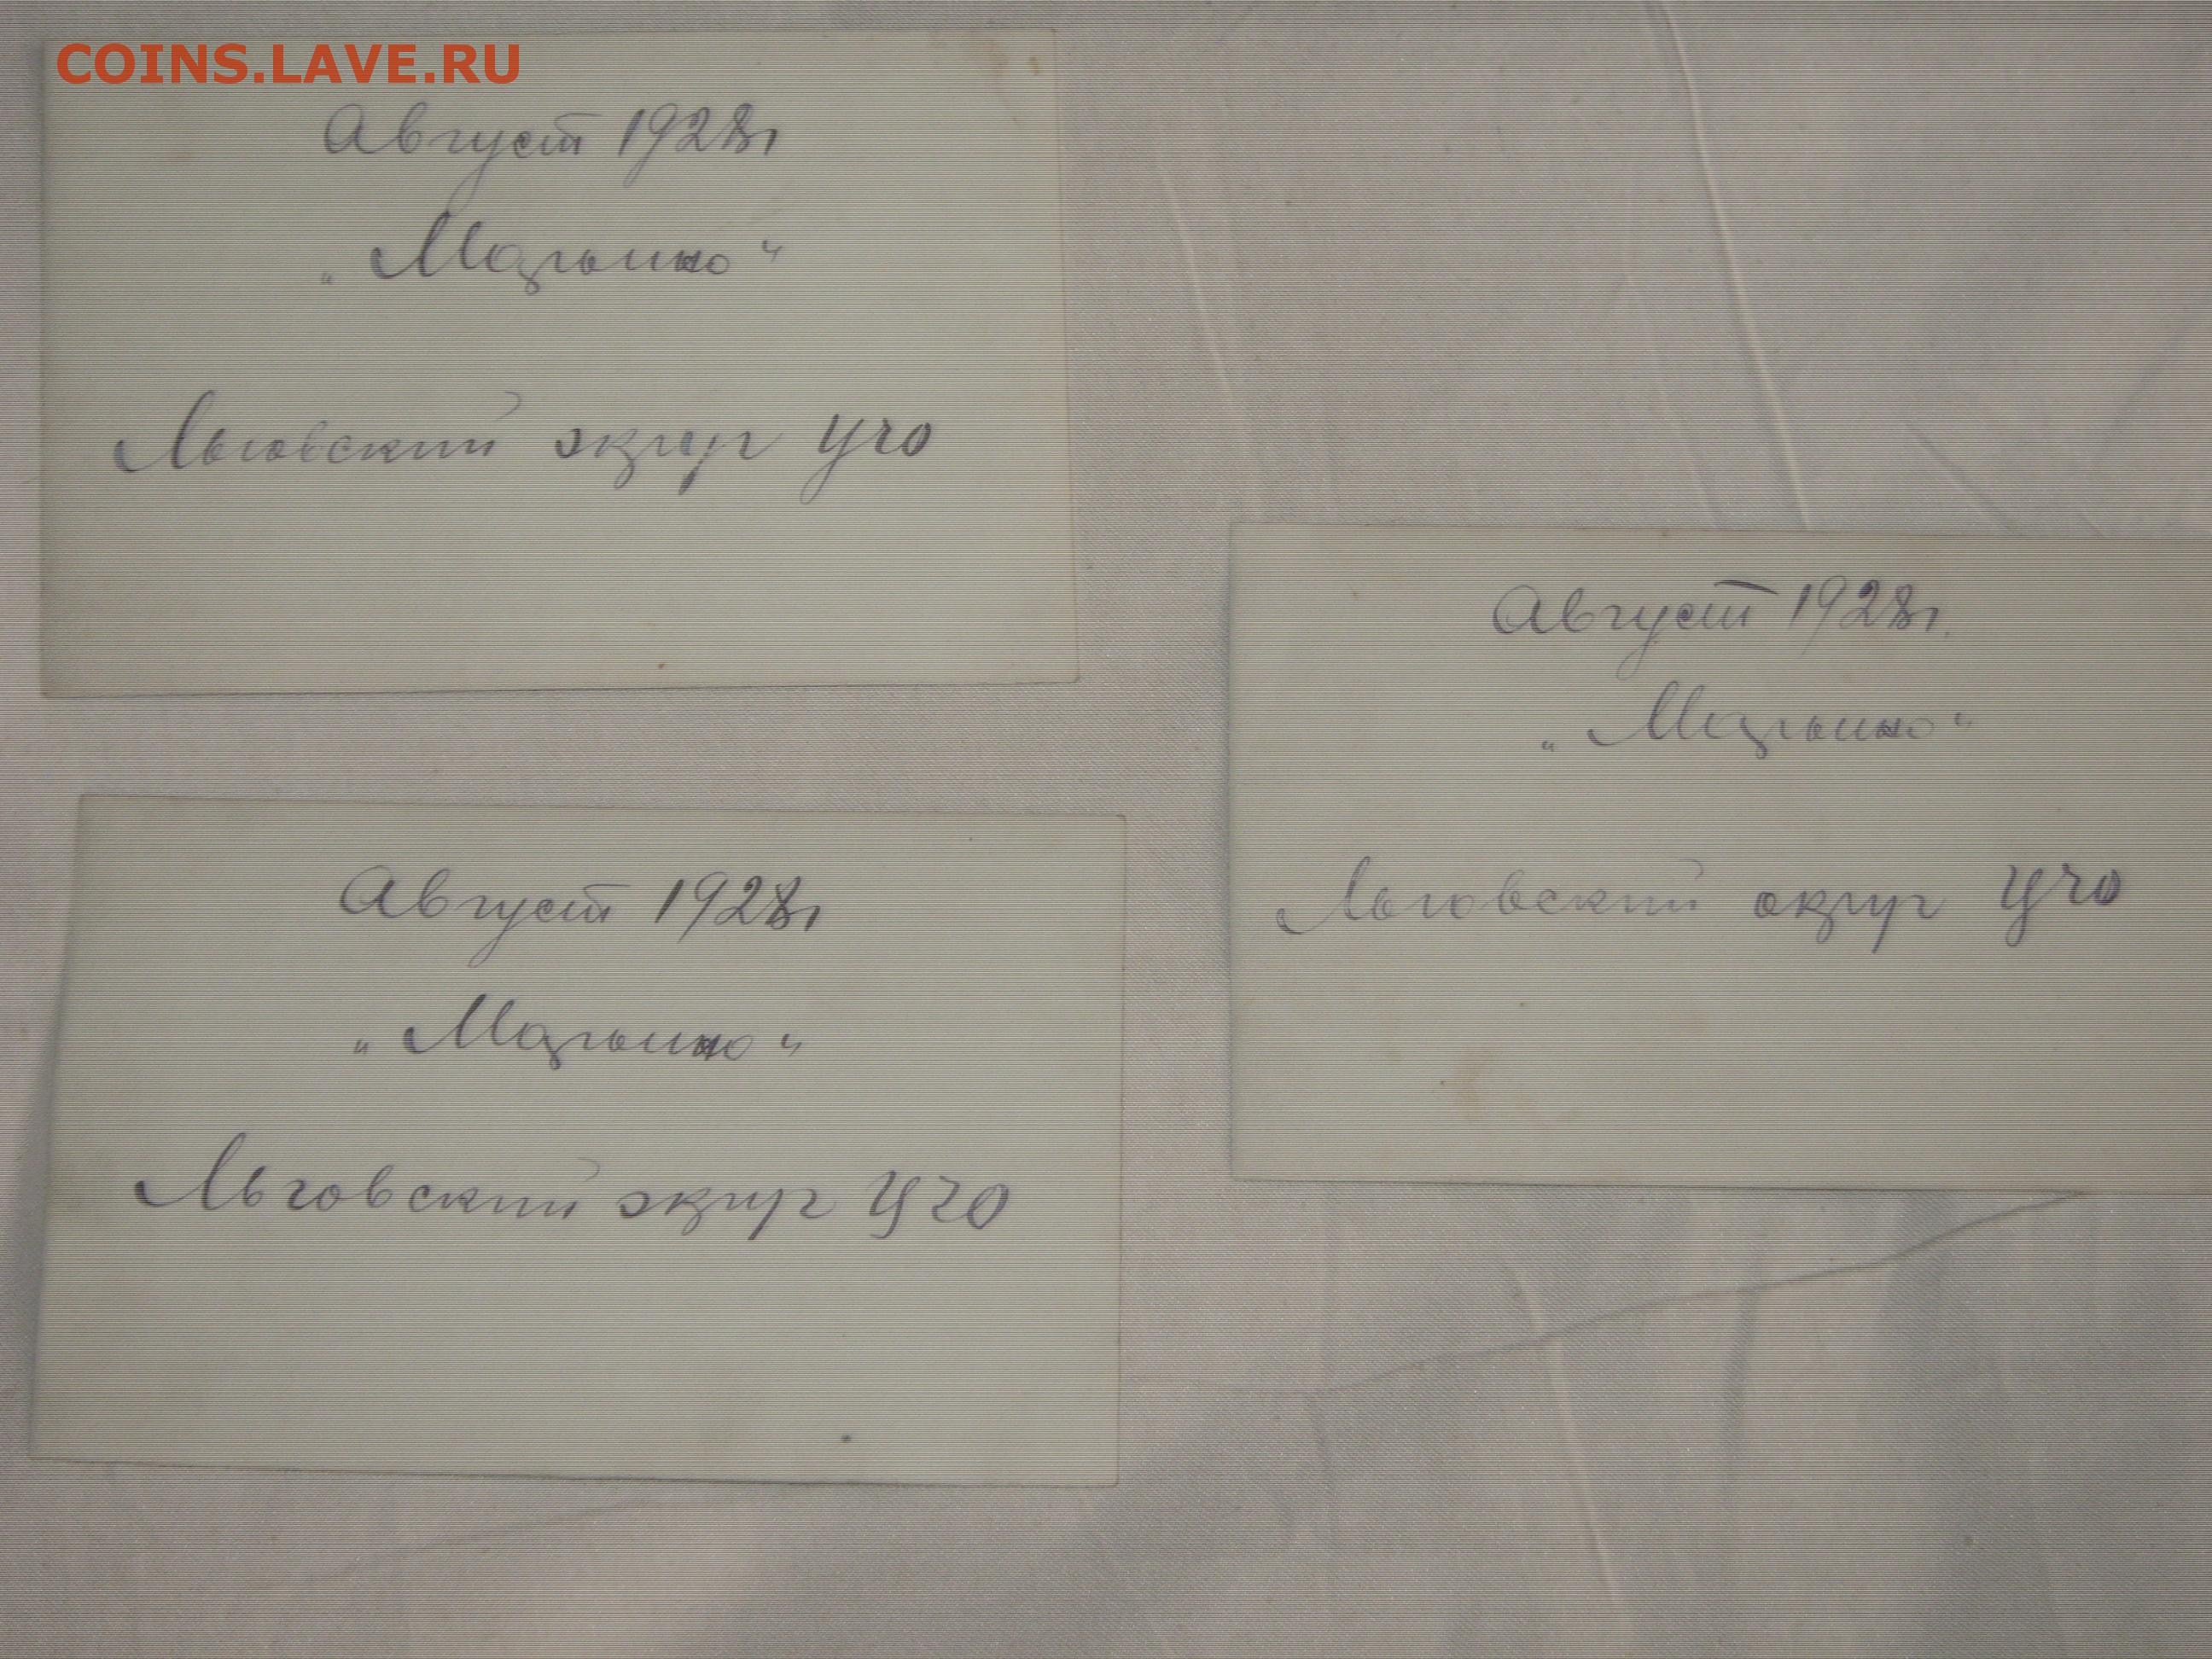 COINS.LAVE.RU
Август 1928г
„Марьино“
Льговский округ ЦЧО
Август 1928г.
„Марьино“
Льговский округ ЦЧО
Август 1928г
„Марьино“
Льговский округ ЦЧО